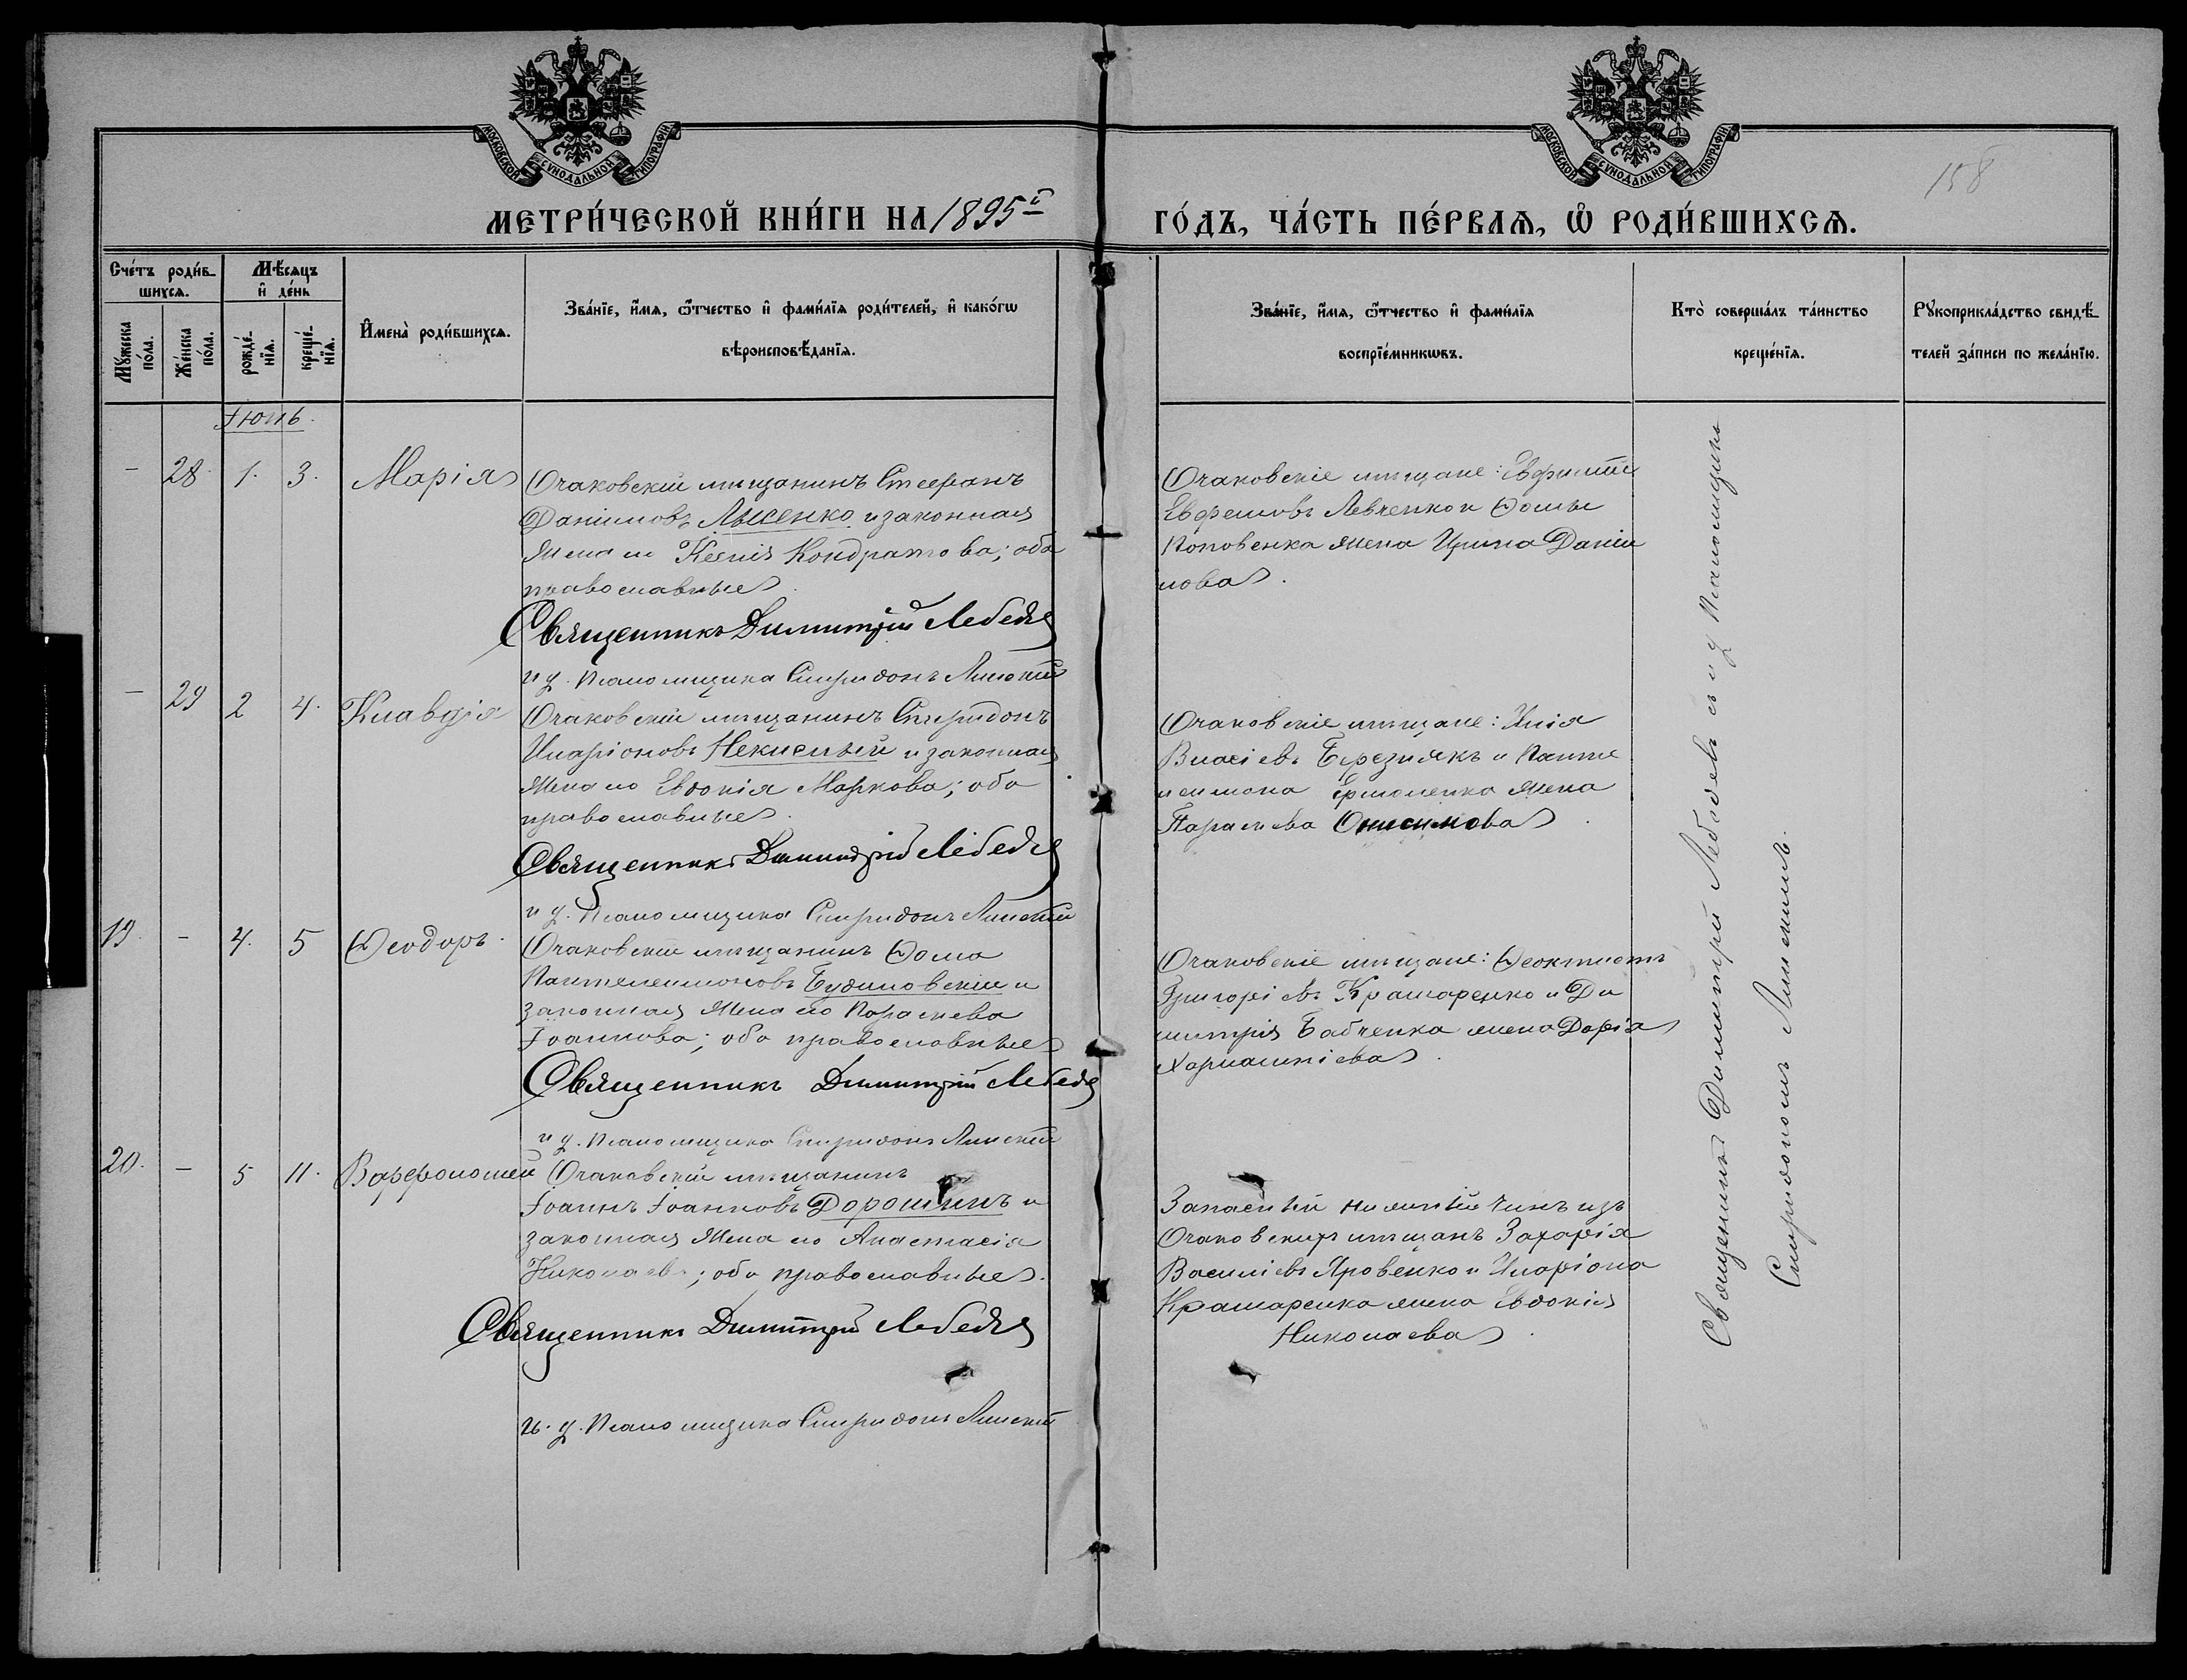 МОСКОВСКОЙ СУНОДАЛЬНОЙ ТИПОГРАФІИ
МОСКОВСКОЙ СУНОДАЛЬНОЙ ТИПОГРАФІИ
158
МЕТРИ́ЧЕСКОЙ КНИ́ГИ НА 1895й
ГО́ДЪ, ЧА́СТЬ ПЕ́РВАѦ, Ѡ҆ РОДИ́ВШИХСѦ.
Сче́тъ роди́в-
шихсѧ.
Мꙋ́жеска по́ла.
Же́нска по́ла.
Мѣ́сѧцъ
и҆ де́нь
рожде́-нїѧ.
креще́-нїѧ.
И҆мена̀ роди́вшихсѧ.
Зва́нїе, и҆́мѧ, ѻ҆́тчество и҆ фами́лїѧ роди́телей, и҆ како́гѡ
вѣроисповѣ́данїѧ.
Зва́нїе, и҆́мѧ, ѻ҆́тчество и҆ фами́лїѧ
воспрїе́мникѡвъ.
Кто̀ соверша́лъ та́инство
креще́нїѧ.
Рꙋкоприкла́дство свидѣ́-
телей за́писи по жела́нїю.
Іюнь.
– 28. 1. 3. Марія
Очаковскій мѣщанинъ Стефанъ
Даніиловъ Лысенко и законная
жена его Ксенія Кондратова; оба
православные.
Священникъ Димитрій Лебедев
и д. Псаломщика Спиридонъ Линскій
Очаковскіе мѣщане: Евфимій
Ефремовъ Левченко и Ѳомы
Поповенка жена Ирина Даніи
лова.
– 29 2 4. Клавдія
Очаковскій мѣщанинъ Спиридонъ
Иларіоновъ Некислый и законная
жена его Евдокія Маркова; оба
православные.
Священникъ Димитрій Лебедев
и д. Псаломщика Спиридонъ Линскій
Очаковскіе мѣщане: Илія
Власіевъ Березнякъ и Панте
леимона Ермоленка жена
Параскева Онисимова.
19. – 4. 5 Ѳеодоръ.
Очаковскій мѣщанинъ Ѳома
Пантелеимоновъ Будиловскій и
законная жена его Параскева
Іоаннова; оба православные
Священникъ Димитрій Лебедев
и д. Псаломщика Спиридонъ Линскій
Очаковскіе мѣщане: Ѳеоктистъ
Григоріевъ Крамаренко и Ди
митрія Бабченка жена Дарія
Харлампіева.
20. – 5 11. Варфоломей
Очаковскій мѣщанинъ
Іоаннъ Іоанновъ Дорошинъ и
законная жена его Анастасія
Николаева; оба православные.
Священникъ Димитрій Лебедев
и. д. Псаломщика Спиридонъ Линскій
Запасный нижній чинъ изъ
Очаковскихъ мѣщанъ Захарія
Васильевъ Яровенко и Иларіона
Крамаренка жена Евдокія
Николаева.
Священникъ Димитрій Лебедевъ съ и д Псаломщика
Спиридономъ Линскимъ.